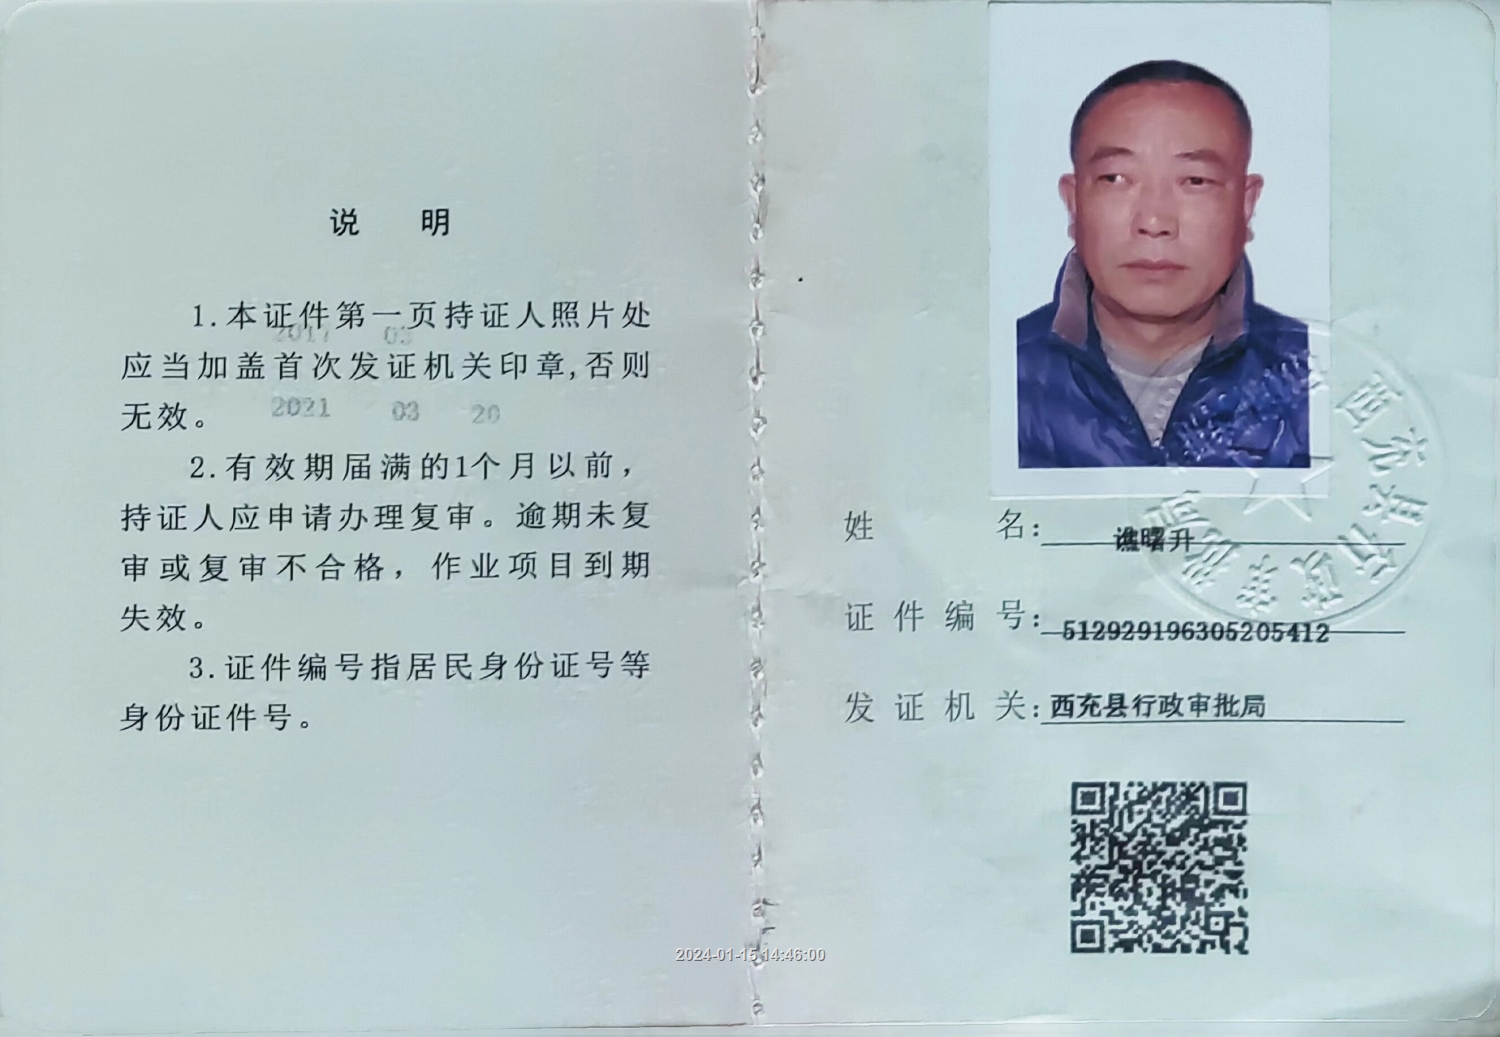 说 明
1.本证件第一页持证人照片处
应当加盖首次发证机关印章,否则
无效。
2.有效期届满的1个月以前，
持证人应申请办理复审。逾期未复
审或复审不合格，作业项目到期
失效。
3.证件编号指居民身份证号等
身份证件号。
2017 03
2021 03 20
姓 名: 谯曙升
证件编号: 512929196305205412
发证机关: 西充县行政审批局
西充县行政审批局
2024-01-15 14:46:00